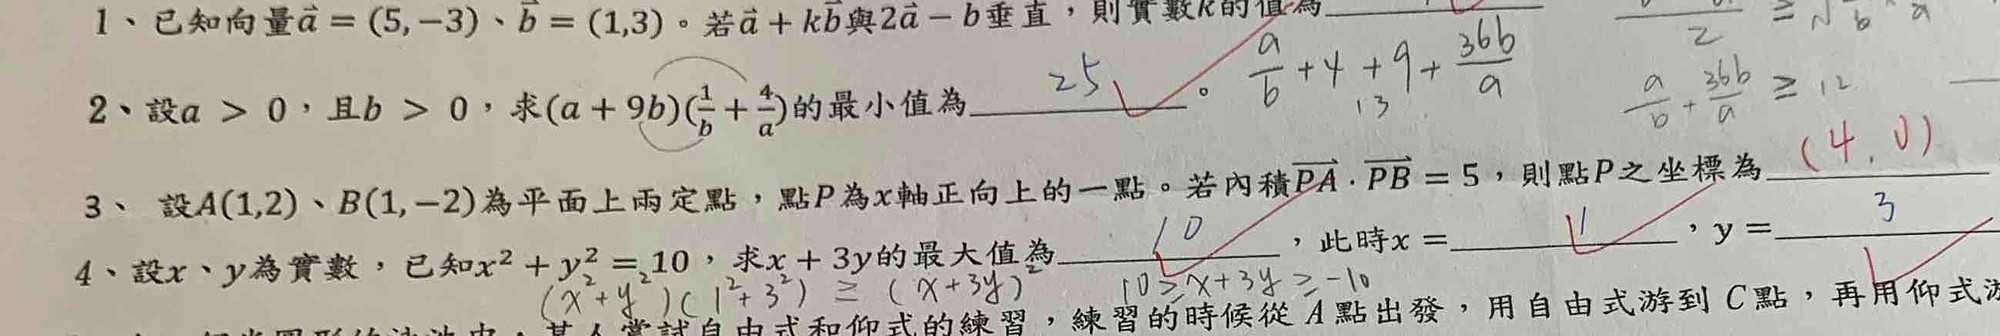 1、已知向量a⃗ = (5,−3)、b⃗ = (1,3)。若a⃗ + kb⃗與2a⃗ − b垂直，則實數k的值為
2 ≥ √ b a
2、設a > 0，且b > 0，求(a + 9b)(1/b + 4/a)的最小值為 25 。 a/b + 4 + 9 + 36b/a
13
a/b + 36b/a ≥ 12
3、 設A(1,2)、B(1,−2)為平面上兩定點，點P為x軸正向上的一點。若內積PA⃗ · PB⃗ = 5，則點P之坐標為 (4,0)
4、設x、y為實數，已知x² + y² = 10，求x + 3y的最大值為 10 ，此時x = 1 ，y = 3
(x²+y²)(1²+3²) ≥ (x+3y)² 10≥x+3y≥-10
某人嘗試自由式和仰式的練習，練習的時候從A點出發，用自由式游到C點，再用仰式游